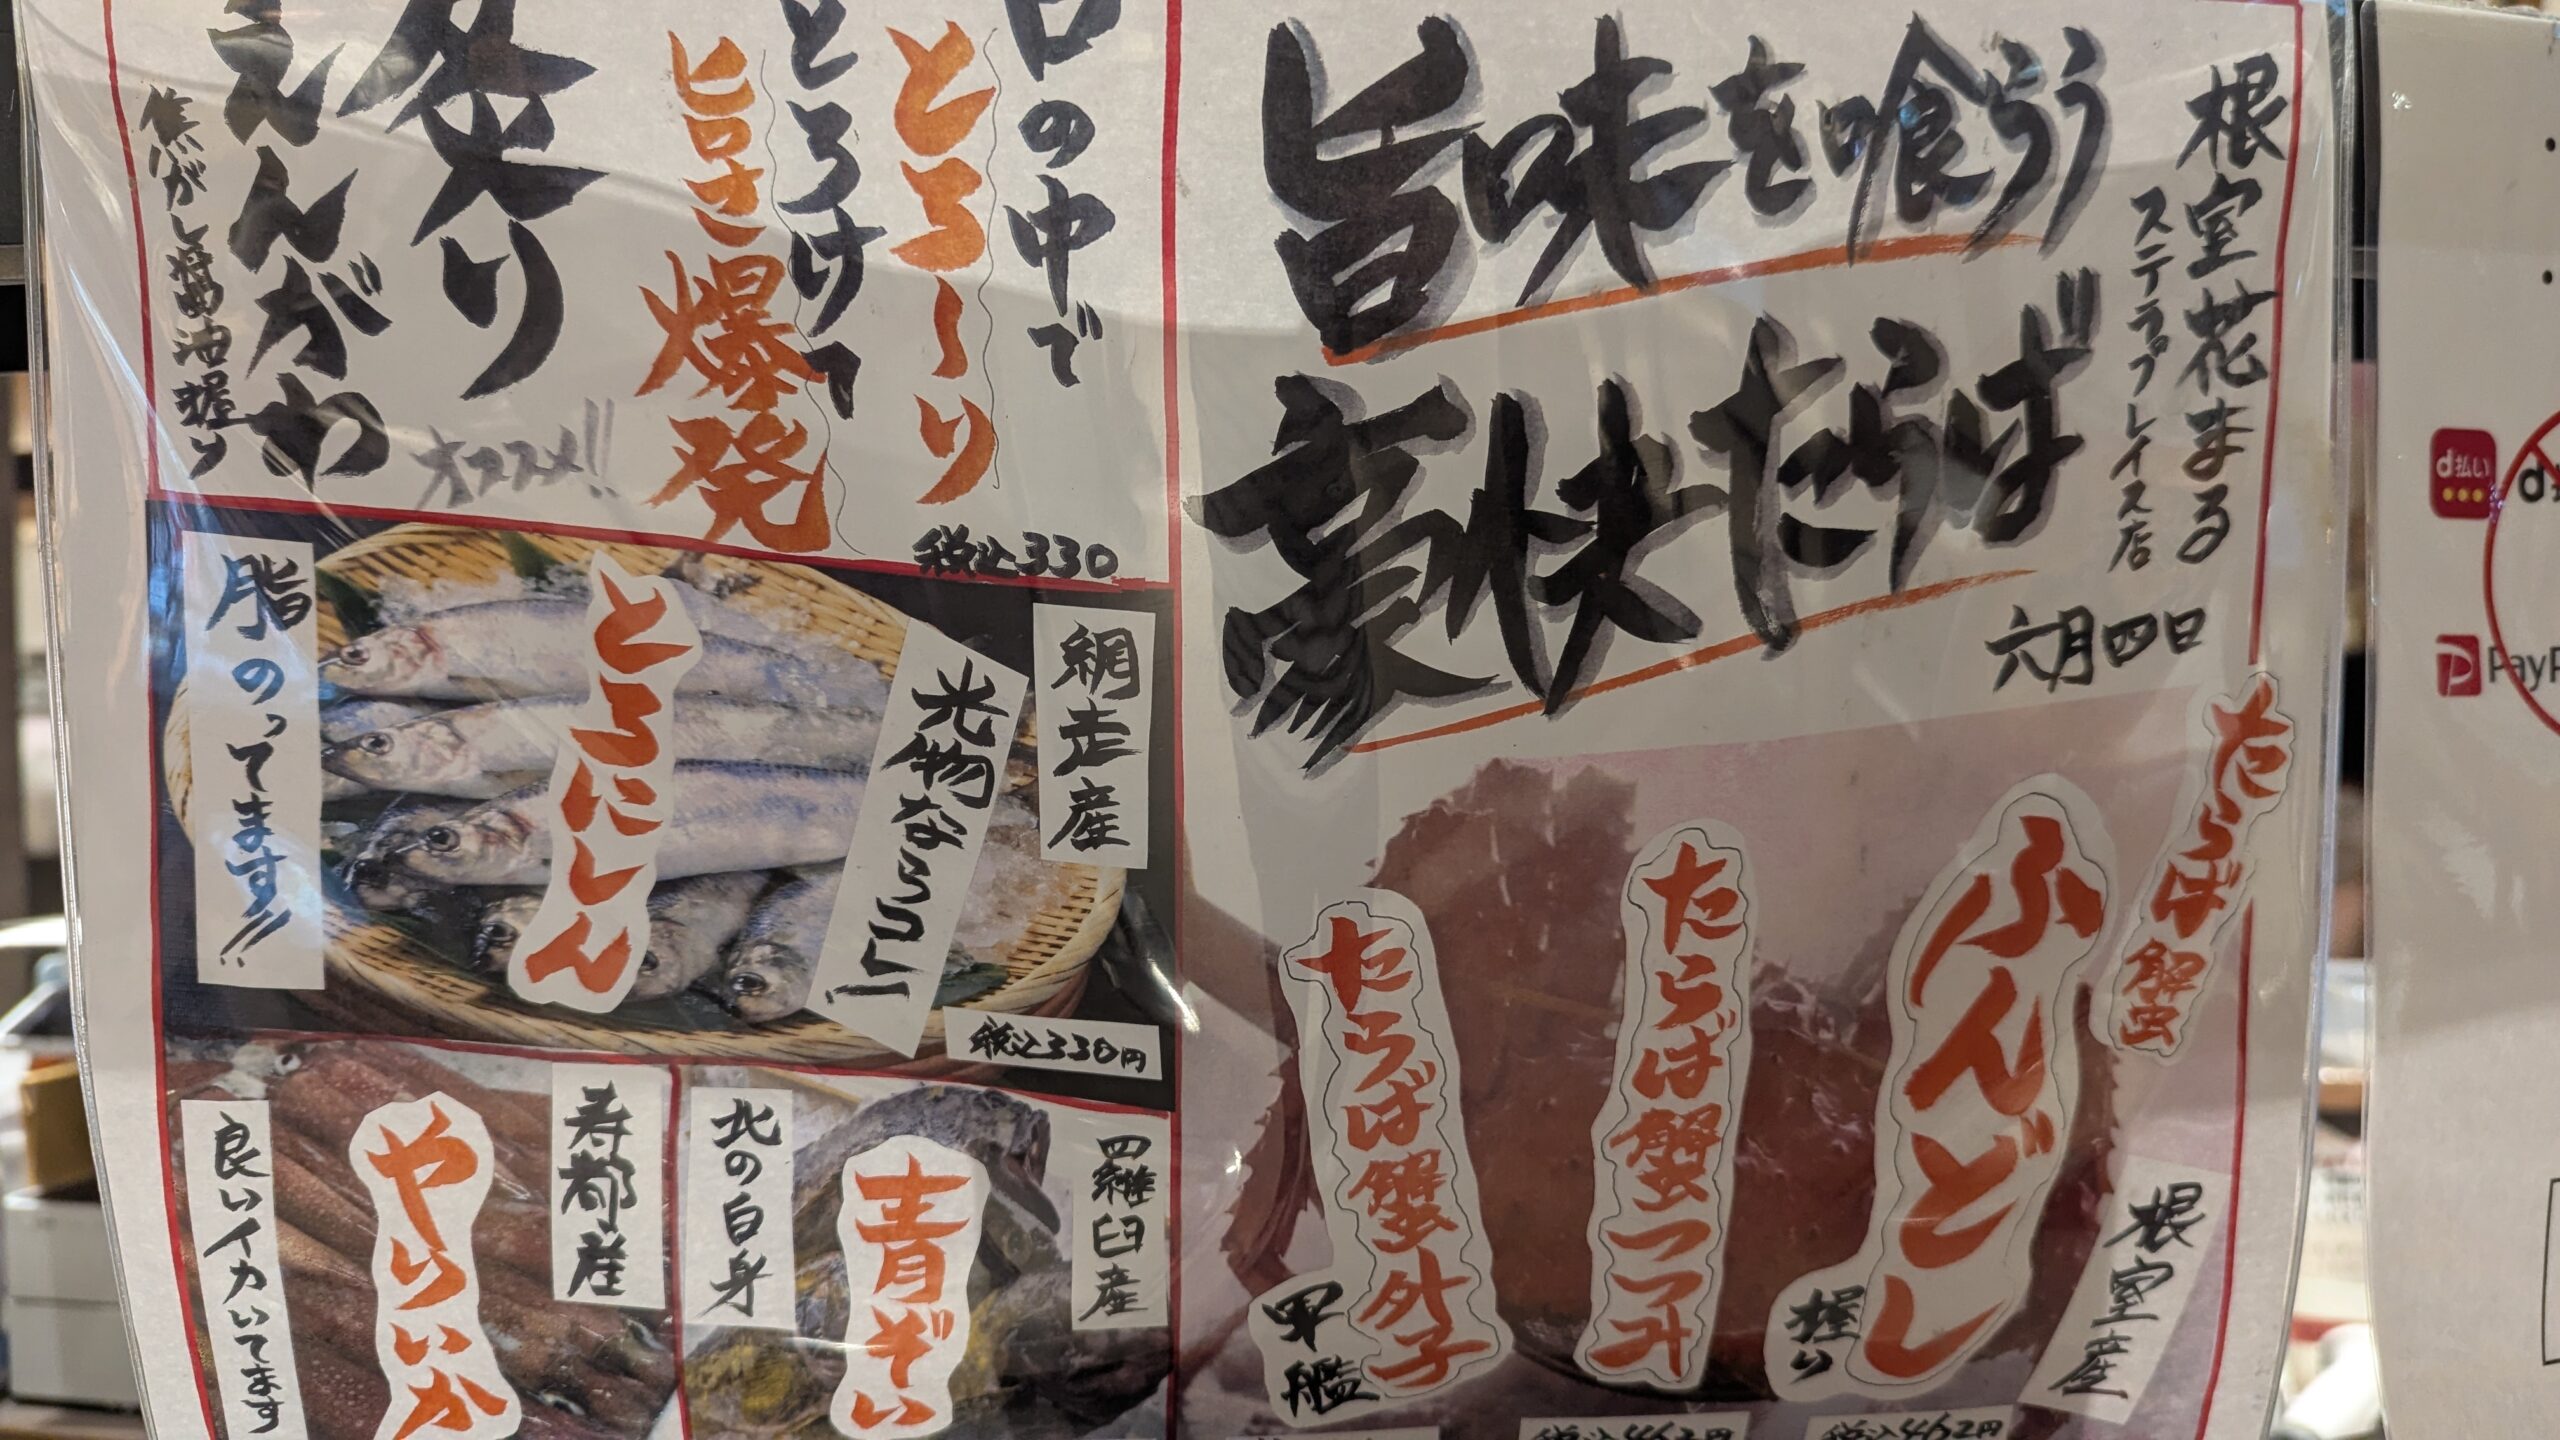 根室花まる
ステラプレイス店
六月四日
旨味を喰らう
豪快たらば
たらば蟹
ふんどし
握り
根室産
たらば蟹つつみ
たらば蟹外子
軍艦
税込462円
税込462円
口の中で
とろ〜り
とろけて
旨さ爆発
炙り
えんがわ
焦がし醤油握り
オススメ!!
税込330
網走産
光物ならコレ!
とろにしん
脂のってます!!
税込330円
寿都産
やりいか
良いイカいてます
羅臼産
青ぞい
北の白身
d払い
PayP